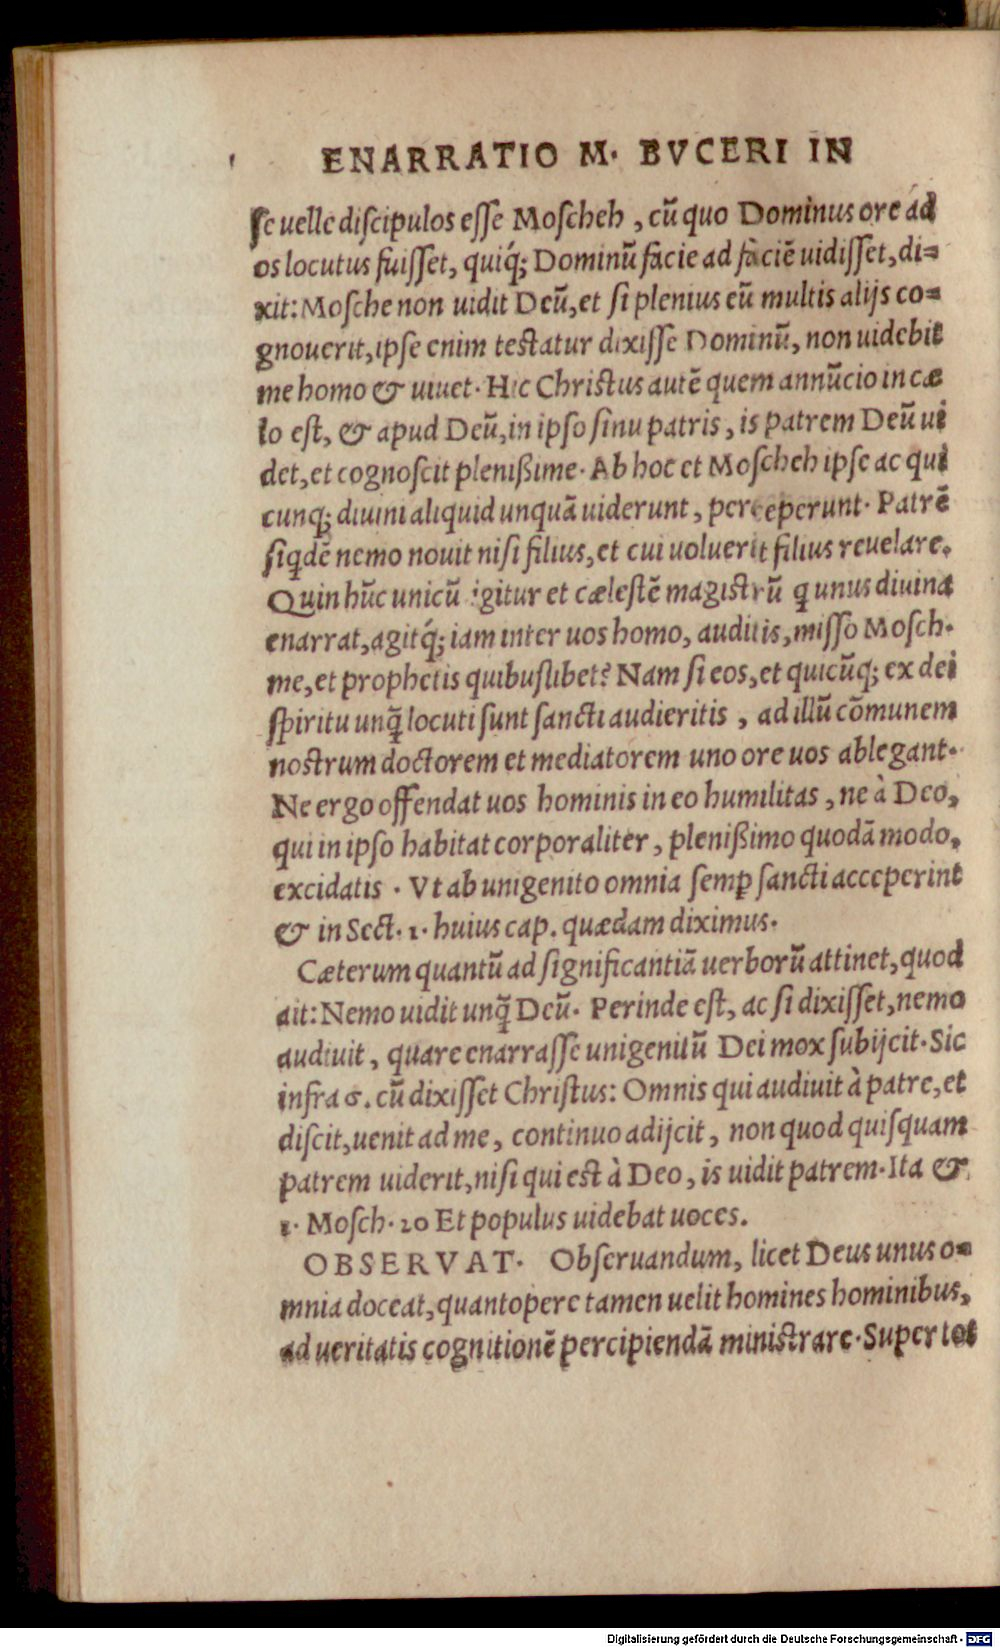 ENARRATIO M. BVCERI IN
ſe uelle diſcipulos eſſe Moſcheh, cū quo Dominus ore ad
os locutus fuiſſet, quiq́; Dominū facie ad faciē uidiſſet, di=
xit: Moſche non uidit Deū, et ſi plenius eū multis alijs co=
gnouerit, ipſe enim teſtatur dixiſſe Dominū, non uidebit
me homo & uiuet. Hic Chriſtus autē quem annūcio in cæ
lo eſt, & apud Deū, in ipſo ſinu patris, is patrem Deū ui
det, et cognoſcit plenißime. Ab hoc et Moſcheh ipſe ac qui
cunq; diuini aliquid unquā uiderunt, perceperunt. Patrē
ſiqdē nemo nouit niſi filius, et cui uoluerit filius reuelare.
Quin hūc unicū igitur et cæleſtē magiſtrū q unus diuina
enarrat, agitq́; iam inter uos homo, auditis, miſſo Moſch.
me, et prophetis quibuſlibet? Nam ſi eos, et quicūq; ex dei
ſpiritu unq̄ locuti ſunt ſancti audieritis, ad illū cōmunem
noſtrum doctorem et mediatorem uno ore uos ablegant.
Ne ergo offendat uos hominis in eo humilitas, ne à Deo,
qui in ipſo habitat corporaliter, plenißimo quodā modo,
excidatis. Vt ab unigenito omnia ſemꝑ ſancti acceperint
& in Sect. 1. huius cap. quædam diximus.
Cæterum quantū ad ſignificantiā uerborū attinet, quod
ait: Nemo uidit unq̄ Deū. Perinde eſt, ac ſi dixiſſet, nemo
audiuit, quare enarraſſe unigenitū Dei mox ſubijcit. Sic
infra 6. cū dixiſſet Chriſtus: Omnis qui audiuit à patre, et
diſcit, uenit ad me, continuo adijcit, non quod quiſquam
patrem uiderit, niſi qui eſt à Deo, is uidit patrem. Ita &
1. Moſch. 20 Et populus uidebat uoces.
OBSERVAT. Obſeruandum, licet Deus unus o=
mnia doceat, quantopere tamen uelit homines hominibus,
ad ueritatis cognitionē percipiendā miniſtrare. Super tot
Digitalisierung gefördert durch die Deutsche Forschungsgemeinschaft - DFG